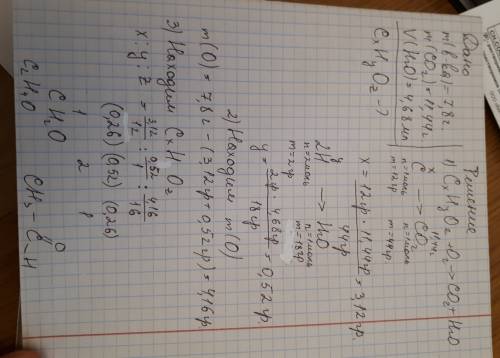 Дано
m(в-ва)=7,8г
m(CO₂)=11,44г
V(H₂O)=4,68мл
CxHyOz-?
Решение
1) CxHyOz+O₂→CO₂+H₂O
x 11,44г
C → CO₂
n=1моль n=1моль
m=12гр m=44гр
x = 12гр · 11,44гр / 44гр = 3,12гр.
y
2H → H₂O
n=2моль n=1моль
m=2гр m=18гр
y = 2гр · 4,68гр / 18гр = 0,52гр
2) Находим m(O)
m(O)=7,8г-(3,12гр+0,52гр)=4,16гр
3) Находим CxHyOz
x:y:z = 3,12/12 : 0,52/1 : 4,16/16
(0,26) (0,52) (0,26)
1 2 1
CH₂O
C₂H₄O CH₃-C-H
O